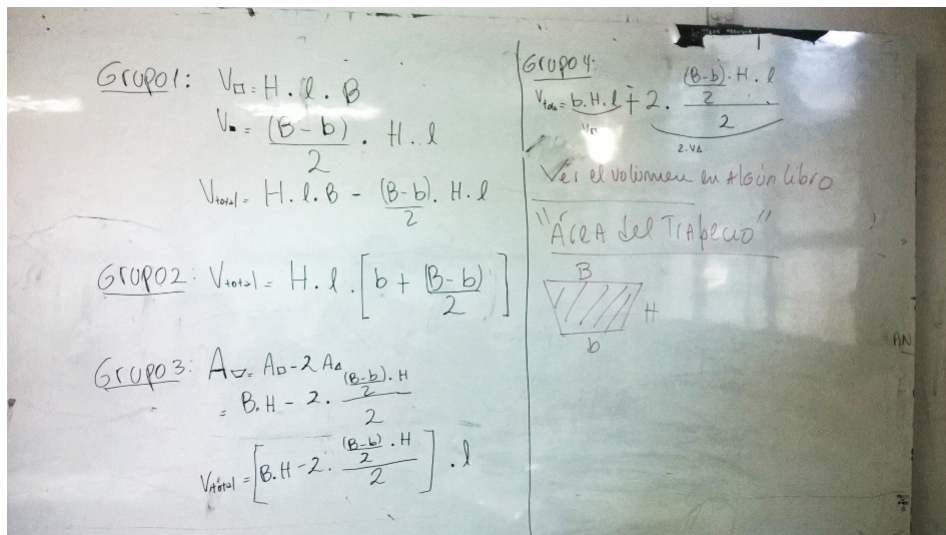 Grupo1: V□ = H . l . B
V▪ = (B-b)/2 . H . l
Vtotal = H . l . B - (B-b)/2 . H . l
Grupo2: Vtotal = H . l . [b + (B-b)/2]
Grupo3: A▽ = A□ - 2 A△
= B.H - 2 . ((B-b)/2 . H)/2
Vtotal = [B.H - 2 . ((B-b)/2 . H)/2] . l
Grupo4:
b . H . l + 2 . ((B-b)/2 . H . l)/2
2.V△
Ver el volumen en Algún libro
"Área del Trapecio"
B
H
b
AN